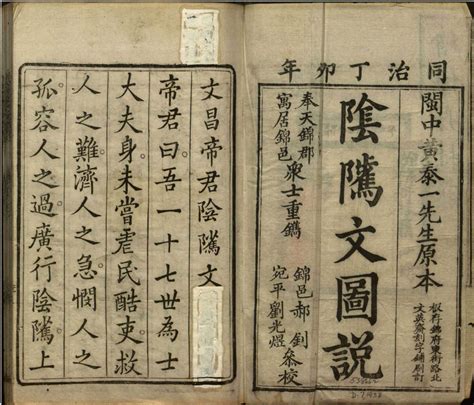 同治丁卯年
閩中黃泰一先生原本
板存錦府東街路北
文英齋刻字鋪刷訂
陰隲文圖說
奉天錦郡
寓居錦邑
眾士重鐫
錦邑郝釗
宛平劉光煜
叅校
文昌帝君陰隲文
帝君曰吾一十七世為士
大夫身未嘗虐民酷吏救
人之難濟人之急憫人之
孤容人之過廣行陰隲上